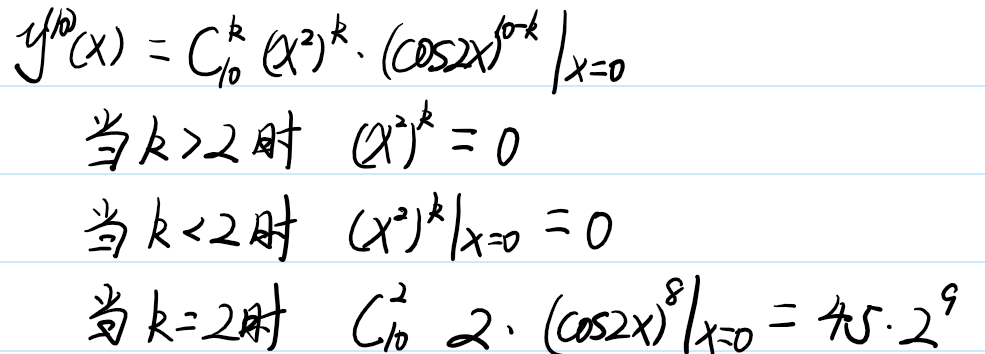 y^{(10)}(x) = C_{10}^{k} (x^2)^{k} · (cos2x)^{10-k} |_{x=0}
当 k>2 时 (x^2)^{k} = 0
当 k<2 时 (x^2)^{k} |_{x=0} = 0
当 k=2时 C_{10}^{2} 2 · (cos2x)^{8} |_{x=0} = 45·2^{9}